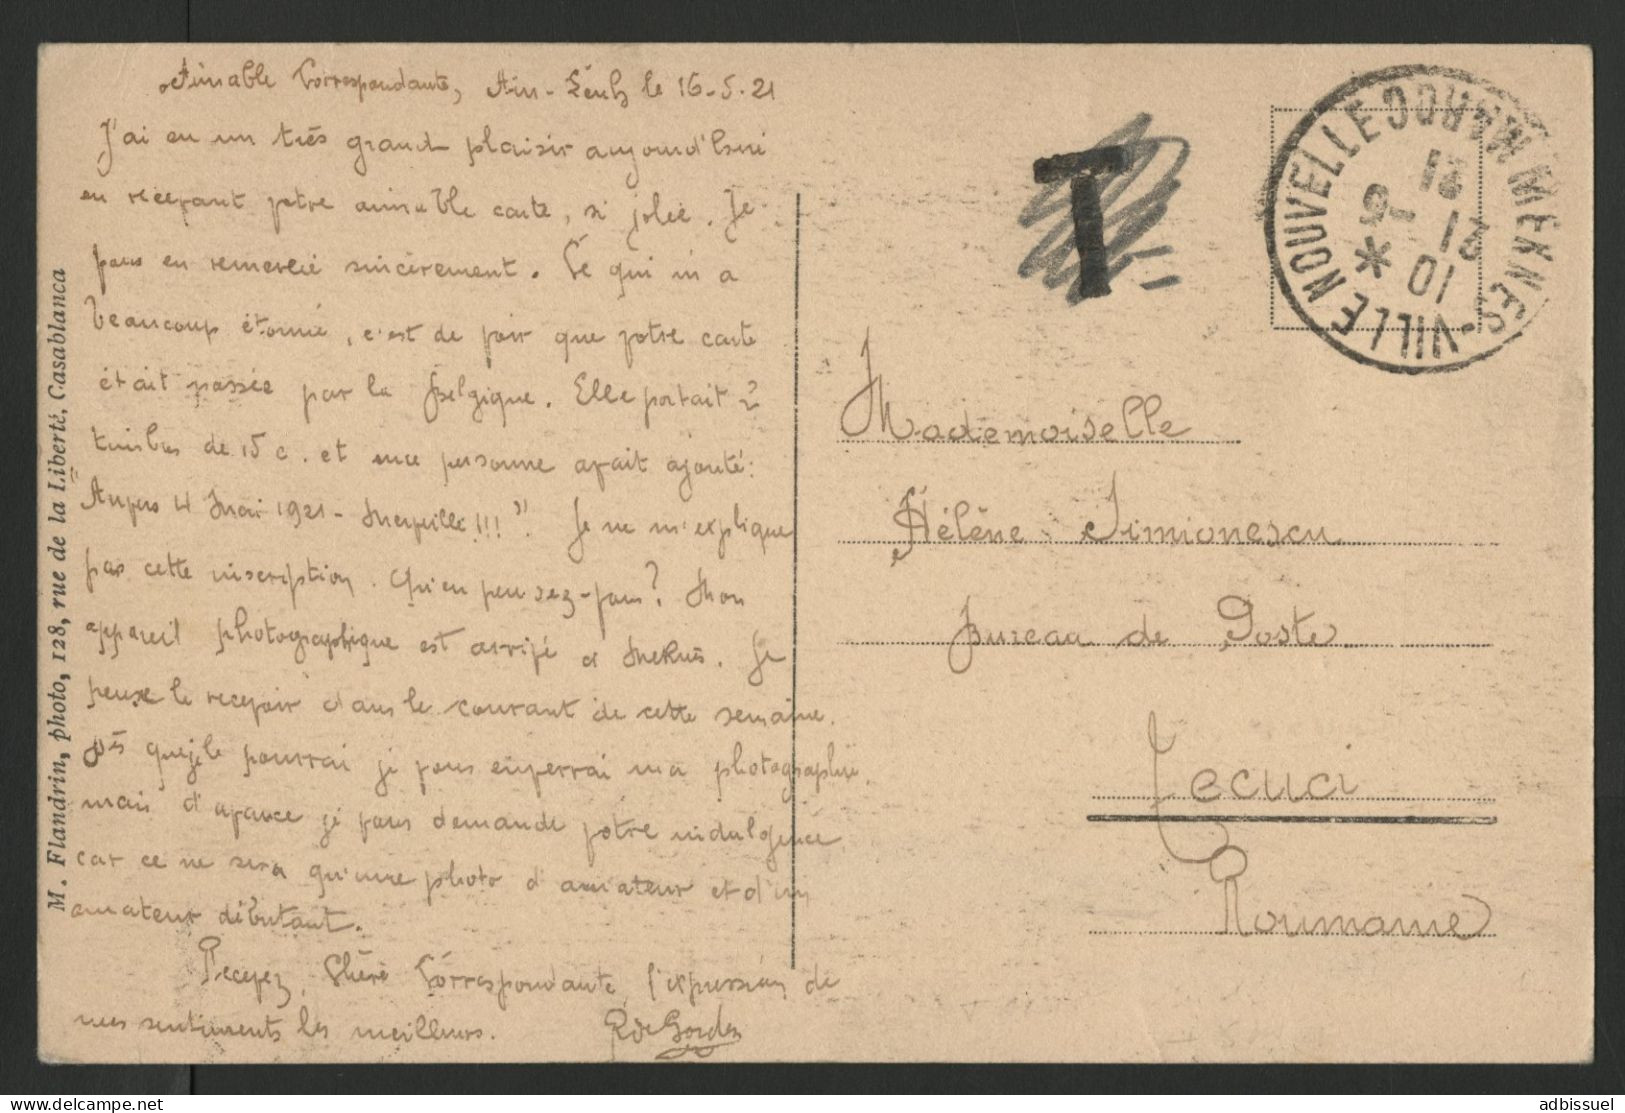 Aimable Correspondante, Aïn-Leuh le 16-5-21
J'ai eu un très grand plaisir aujourd'hui
en recevant votre aimable carte, si jolie. Je
vous en remercie sincèrement. Ce qui m'a
beaucoup étonné, c'est de voir que votre carte
était passée par la Belgique. Elle portait 2
timbres de 15 c. et une personne avait ajouté:
"Anvers 4 Mai 1921 - Merveille!!!" Je ne m'explique
pas cette inscription. Qu'en pensez-vous? Mon
appareil photographique est arrivé à Meknès. Je
peux le recevoir dans le courant de cette semaine.
Dès que je le pourrai je vous enverrai ma photographie,
mais d'avance je vous demande votre indulgence
car ce ne sera qu'une photo d'amateur et d'un
amateur débutant.
Recevez, Chère Correspondante, l'expression de
mes sentiments les meilleurs.
M. Flandrin, photo, 128, rue de la Liberté, Casablanca
T
MEKNES-VILLE NOUVELLE MAROC
Mademoiselle
Hélène Simionescu
Bureau de Poste
Tecuci
Roumanie
delcampe.net
adbissuel